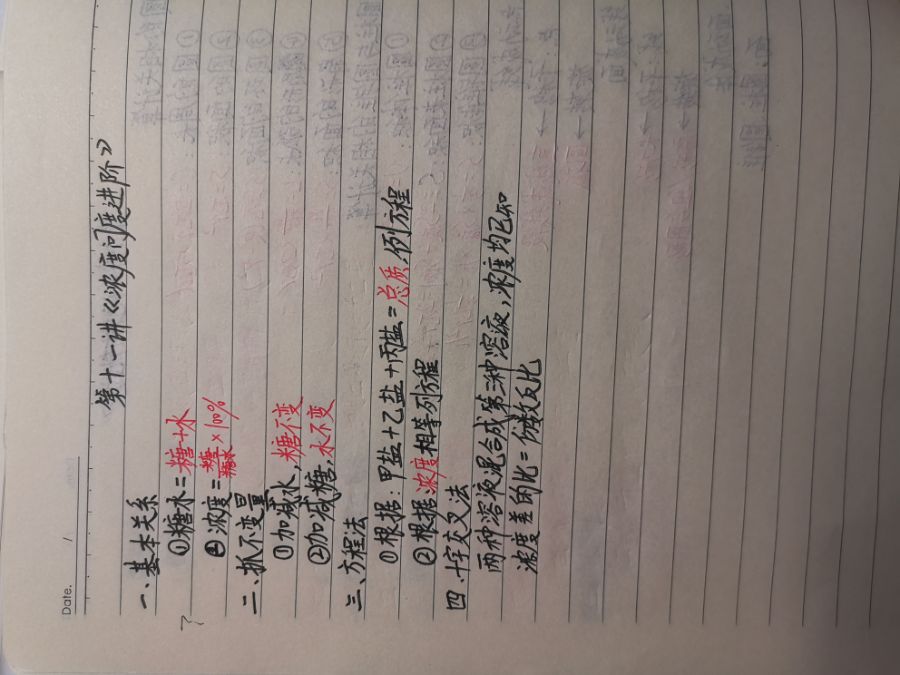 Date. /
第十一讲《浓度问度进阶》
一、基本关系
①糖水=糖+水
②浓度=糖/糖水×100%
二、抓不变量
①加减水,糖不变
②加减糖,水不变
三、方程法
①根据:甲盐+乙盐+丙盐=总质,例方程
②根据浓度相等列方程
四、十字交叉法
两种溶液混合成第三种溶液,浓度均已知
浓度差的比=份数反比